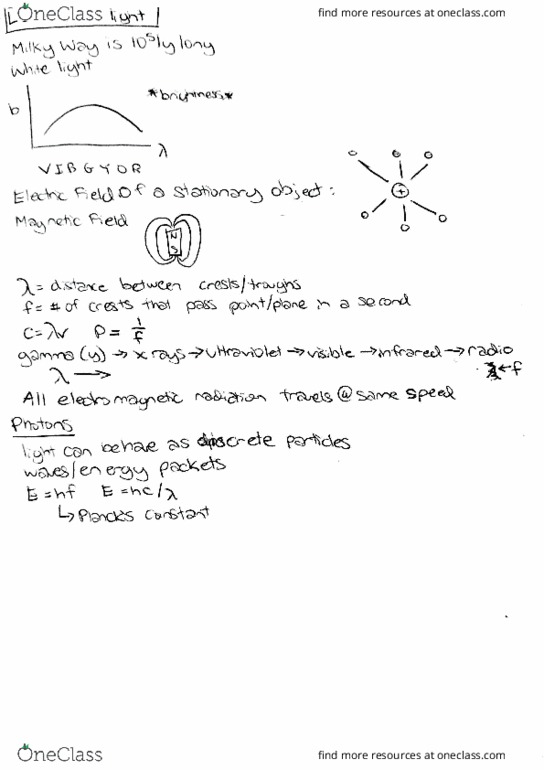 OneClass light
find more resources at oneclass.com
Milky Way is 10⁵ ly long
White light
*brightness*
b
λ
V I B G Y O R
Electric Field Of a stationary object:
+
Magnetic Field
N
S
λ = distance between crests/troughs
f = # of crests that pass point/plane in a second
c = λν P = 1/f
gamma (γ) → x rays → Ultraviolet → visible → infrared → radio
λ → ← f
All electromagnetic radiation travels @ same speed
Photons
light can behave as discrete particles
waves/energy packets
E = hf E = hc/λ
↳ Planck's constant
OneClass
find more resources at oneclass.com